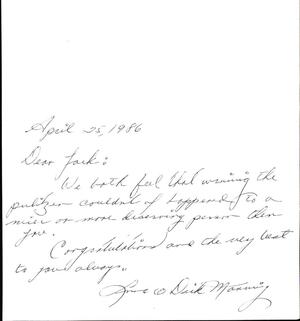 April 25, 1986
Dear Jack:
We both feel that winning the
pulitzer couldn't of happend to a
nicer or more deserving person then
you.
Congratulations and the very best
to you always.
& Dick Manning